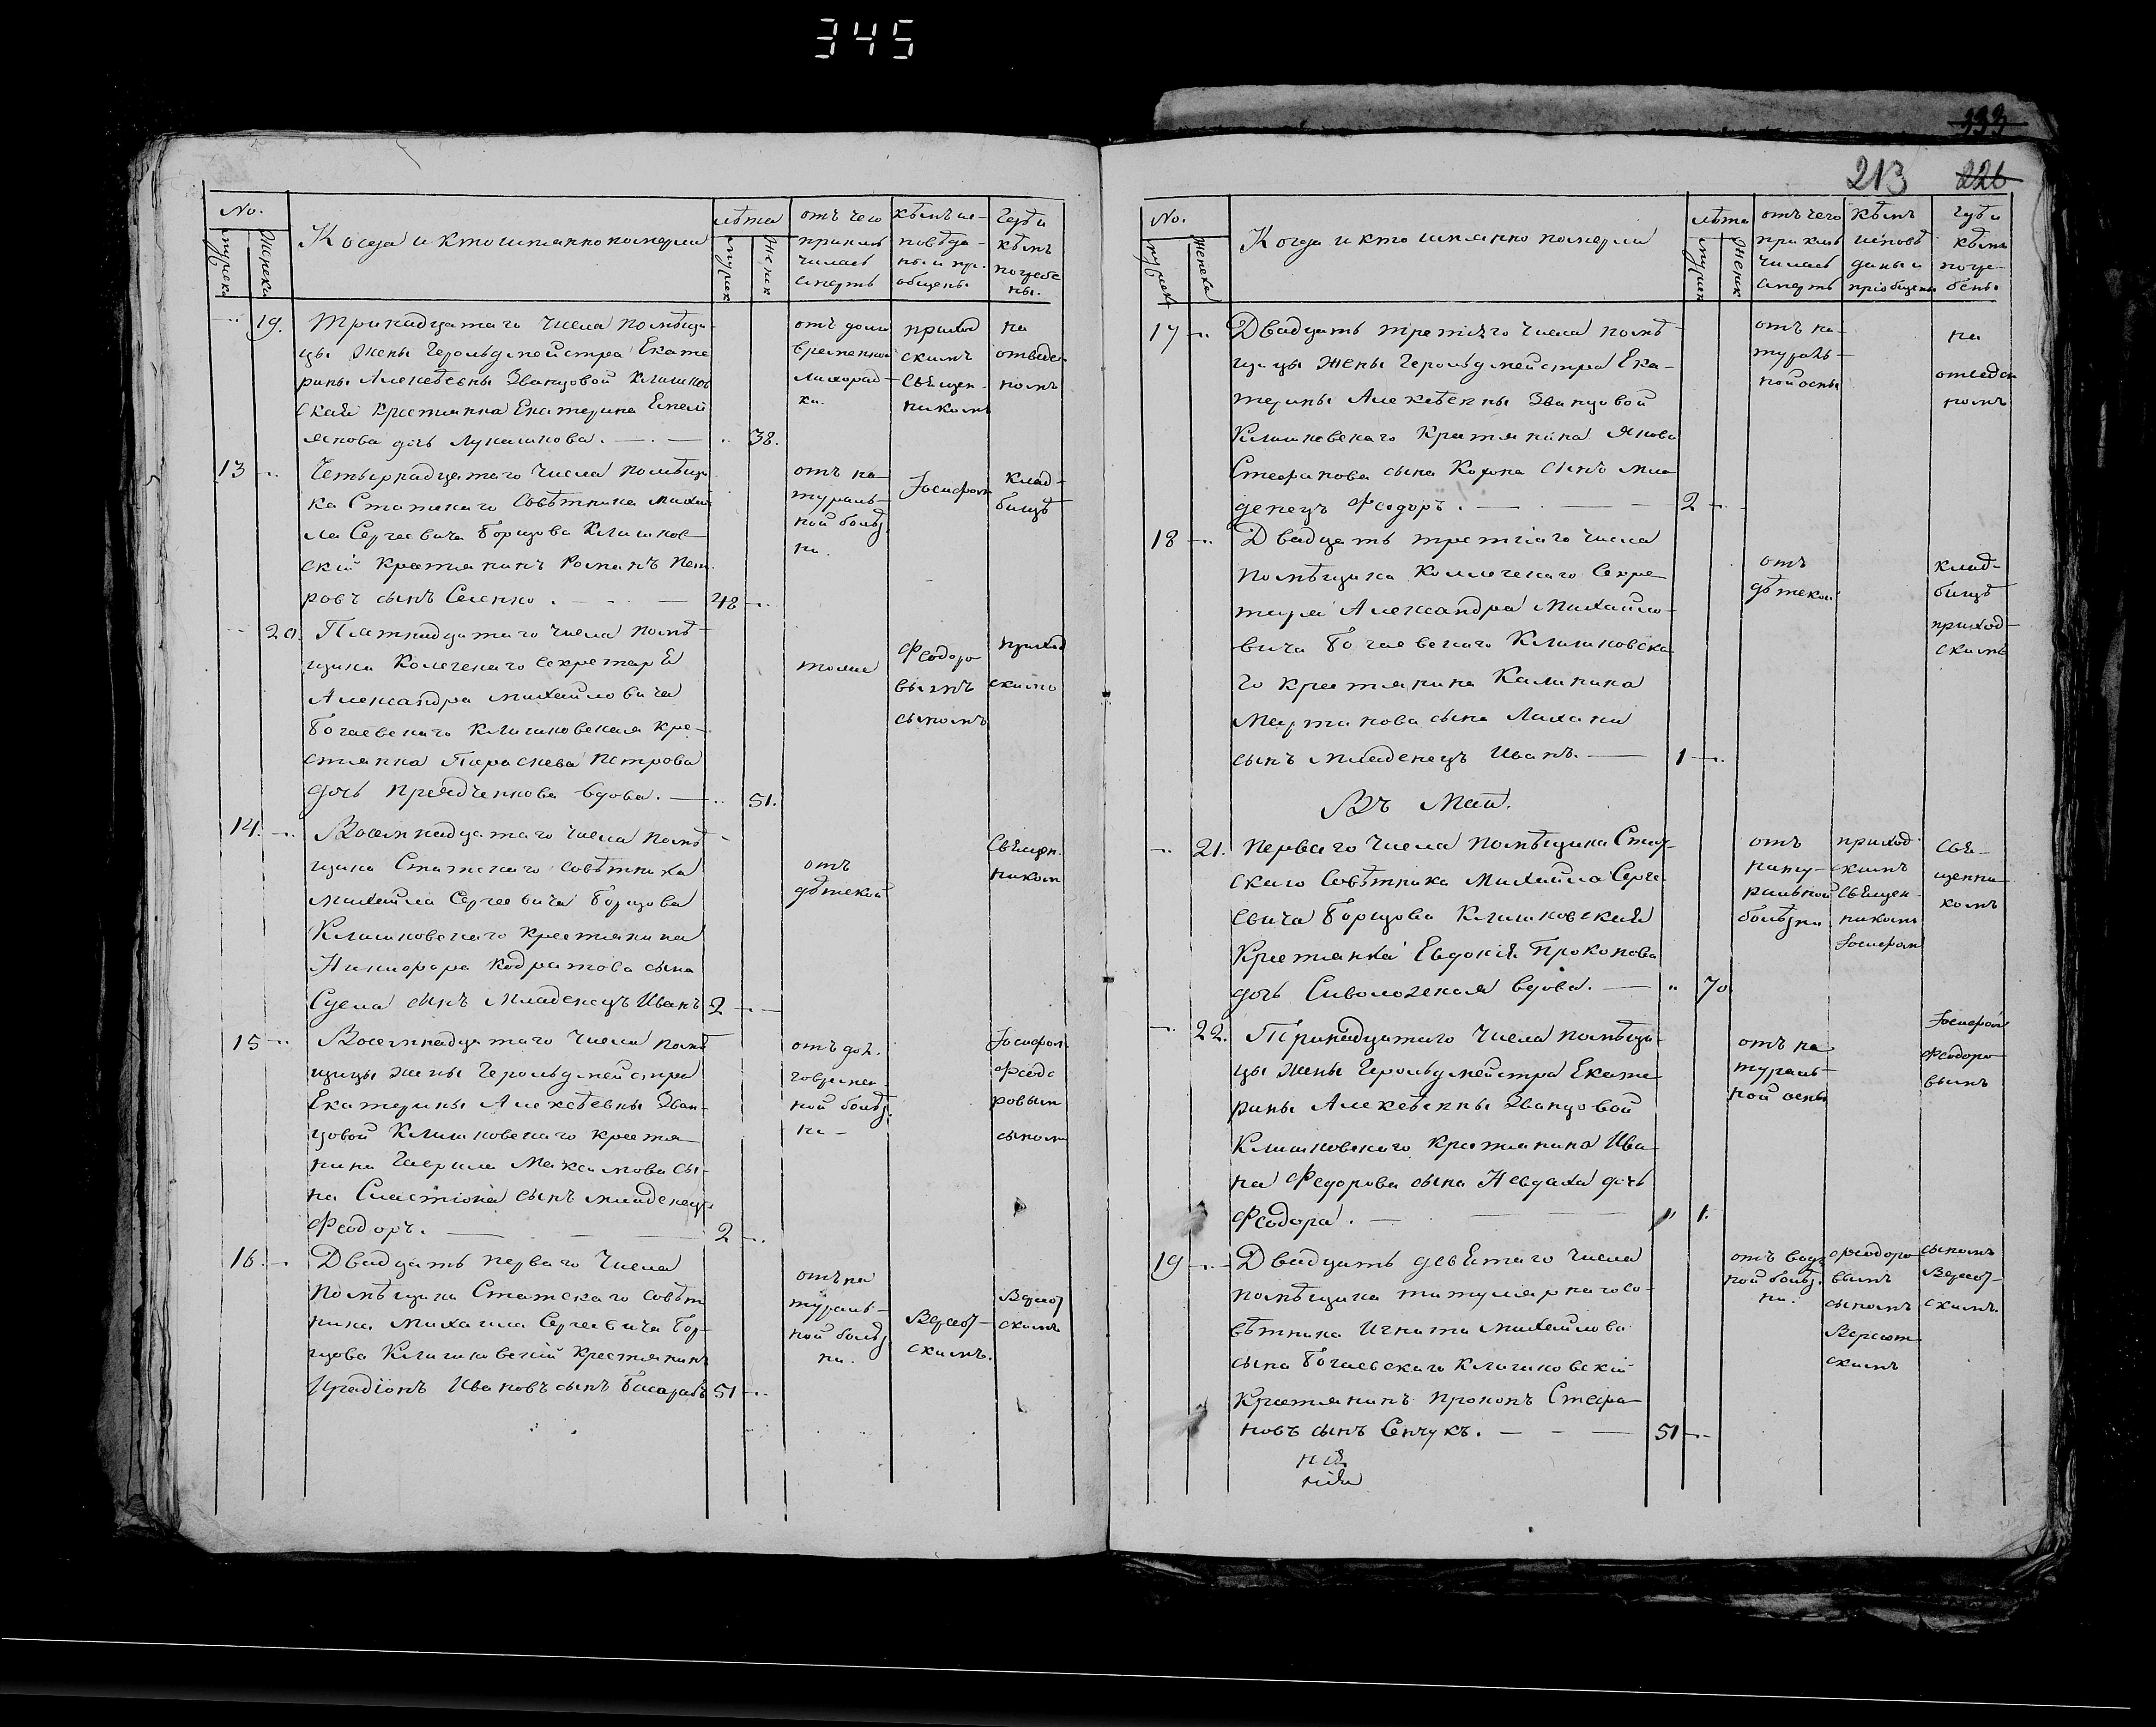 345
No.
мужеска
женска
Когда и кто имянно померли
лѣта
мужск
женск
отъ чего приклю чилась смерть
кѣмъ ис- повѣда- ны и прі- общены
Гдѣ и кѣмъ погребе ны.
19. Тринадцатаго числа помѣщи-
цы жены Герольдмейстра Екате
рины Алексѣевны Званцовой Клишков
ская крестянка Екатерина Емелі
янова дочь Лукашкова. 38.
отъ долго
временной
лихорад-
ки.
приход
скимъ
священ-
никомъ
на
отведен
номъ
13 Четырнадцатаго числа помѣщи
ка Статскаго Совѣтника Михай
ла Сергеевича Борщова Клишков-
скій крестянинъ Романъ Пет
ровъ сынъ Сененко. 48
отъ на-
тураль-
ной болѣз
ни.
Іосифом
клад-
бищѣ
20. Пятнадцатаго числа помѣ-
щика Колежскаго Секретаря
Александра Михайловича
Богаевскаго Клишковская кре-
стянка Параскева Петрова
дочь вдова. 51.
тоже
Феодоро
вымъ
сыномъ
приход
скимъ
14. Восемнадцатаго числа помѣ-
щика Статскаго Совѣтника
Михайла Сергеевича Борщова
Клишковскаго крестянина
Никифора Кодратова сына
сынъ младенецъ Иванъ 2
отъ
дѣтской
Священ-
ником
15 Восемнадцатаго числа помѣ
щицы жены Герольдмейстра
Екатерины Алексѣевны Зван-
цовой Клишковскаго крестя-
нина Гаврила Максимова сы-
на Сластіона сынъ младенецъ
Феодоръ. 2
отъ дол-
говремен-
ной болѣз
ни
Іосифом
Феодо
ровым
сыном
16. Двадцать перваго числа
помѣщика Статскаго Совѣт
ника Михаила Сергеевича Бор-
щова Клишковскій крестянинъ
Иродіонъ Ивановъ сынъ Басарабъ 51
отъ на
тураль-
ной болѣз
ни.
скимъ.
скимъ
333
213 226
No.
мужеска
женска
Когда и кто имянно померли
лѣта
мужеск
женск
отъ чего приклю чилась смерть
кѣмъ исповѣ даны и пріобщены
гдѣ и кѣмъ погре- бены
17 Двадцать третяго числа помѣ-
щицы жены Герольдмейстра Ека-
терины Алексѣевны Званцовой
Клишковскаго крестянина Якова
Стефанова сына сынъ мла
денецъ Феодоръ. 2
отъ на-
тураль-
ной оспы
на
отведен
номъ
18 Двадцать третяго числа
помѣщика Коллежскаго Секре
таря Александра Михайло-
вича Богаевскаго Клишковска
го крестянина Калиника
Мартинова сына
сынъ младенецъ Иванъ. 1
отъ
дѣтской
клад-
бищѣ
приход-
скимъ
Въ Маи.
21. Перваго числа помѣщика Стат-
скаго Совѣтника Михайла Серге
евича Борщова Клишковская
Крестянка Евдокія Прокопова
дочь вдова. 70
отъ
нату-
ральной
болѣзни
приход-
скимъ
священ-
никомъ
Іосифом
Свя-
щенни
комъ
22. Тринадцатаго числа помѣщи-
цы жены Герольдмейстра Екате
рины Алексѣевны Званцовой
Клишковскаго крестянина Ива
на Федорова сына дочь
Феодора. 1.
отъ на
тураль-
ной оспы
Іосифом
Феодоро
вымъ
19 Двадцать девятаго числа
помѣщика титулярнаго со-
вѣтника Игната Михайлова
сына Богаевскаго Клишковскій
Крестянинъ Прокопъ Стефа-
новъ сынъ Сенчукъ. 51
болѣз
ни.
Феодоро
вымъ
сыномъ
скимъ
сыномъ
скимъ.